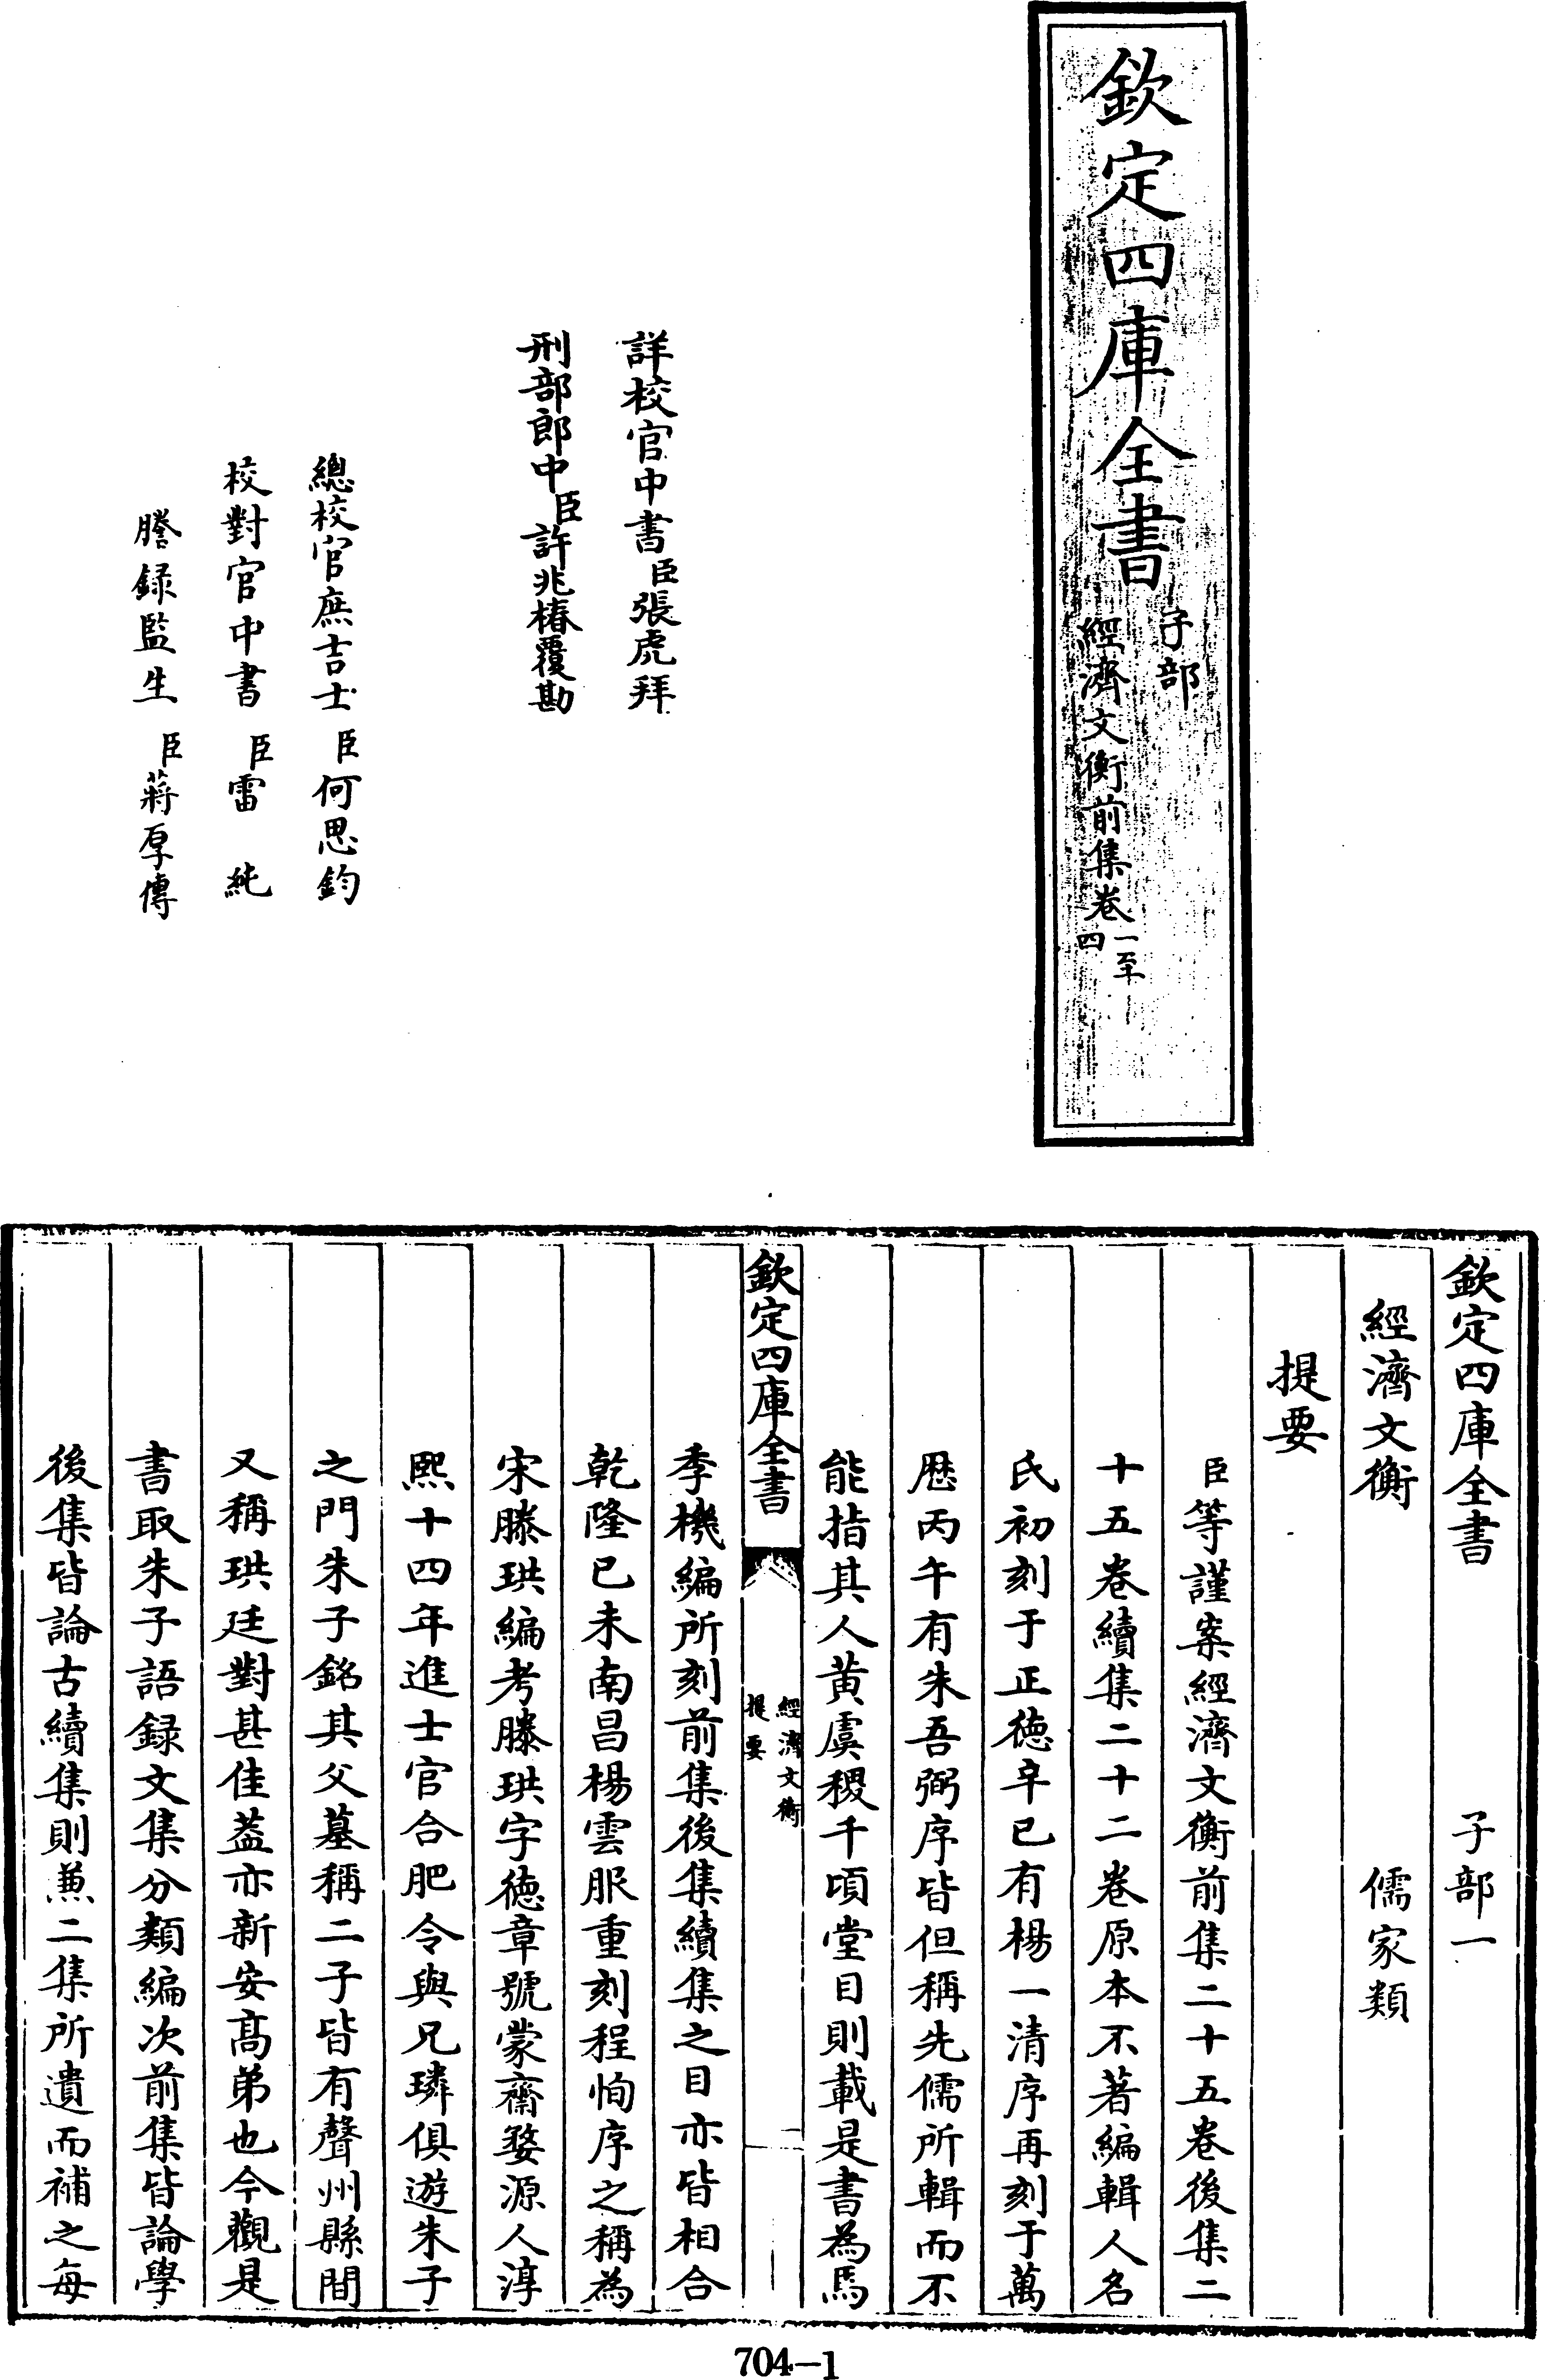 欽定四庫全書
子部
經濟文衡前集卷一至四
詳校官中書臣張虎拜
刑部郎中臣許兆椿覆勘
總校官庶吉士臣何思鈞
校對官中書臣雷純
謄錄監生臣蔣厚傳
欽定四庫全書 子部一
經濟文衡 儒家類
提要
臣等謹案經濟文衡前集二十五卷後集二
十五卷續集二十二卷原本不著編輯人名
氏初刻于正徳辛巳有楊一清序再刻于萬
厯丙午有朱吾弼序皆但稱先儒所輯而不
能指其人黄虞稷千頃堂目則載是書為馬
欽定四庫全書
經濟文衡
提要
一
季機編所刻前集後集續集之目亦皆相合
乾隆已未南昌楊雲服重刻程恂序之稱為
宋滕珙編考滕珙字徳章號蒙齋婺源人淳
熙十四年進士官合肥令與兄璘俱遊朱子
之門朱子銘其父墓稱二子皆有聲州縣間
又稱珙廷對甚佳葢亦新安髙弟也今觀是
書取朱子語録文集分類編次前集皆論學
後集皆論古續集則兼二集所遺而補之每
704-1